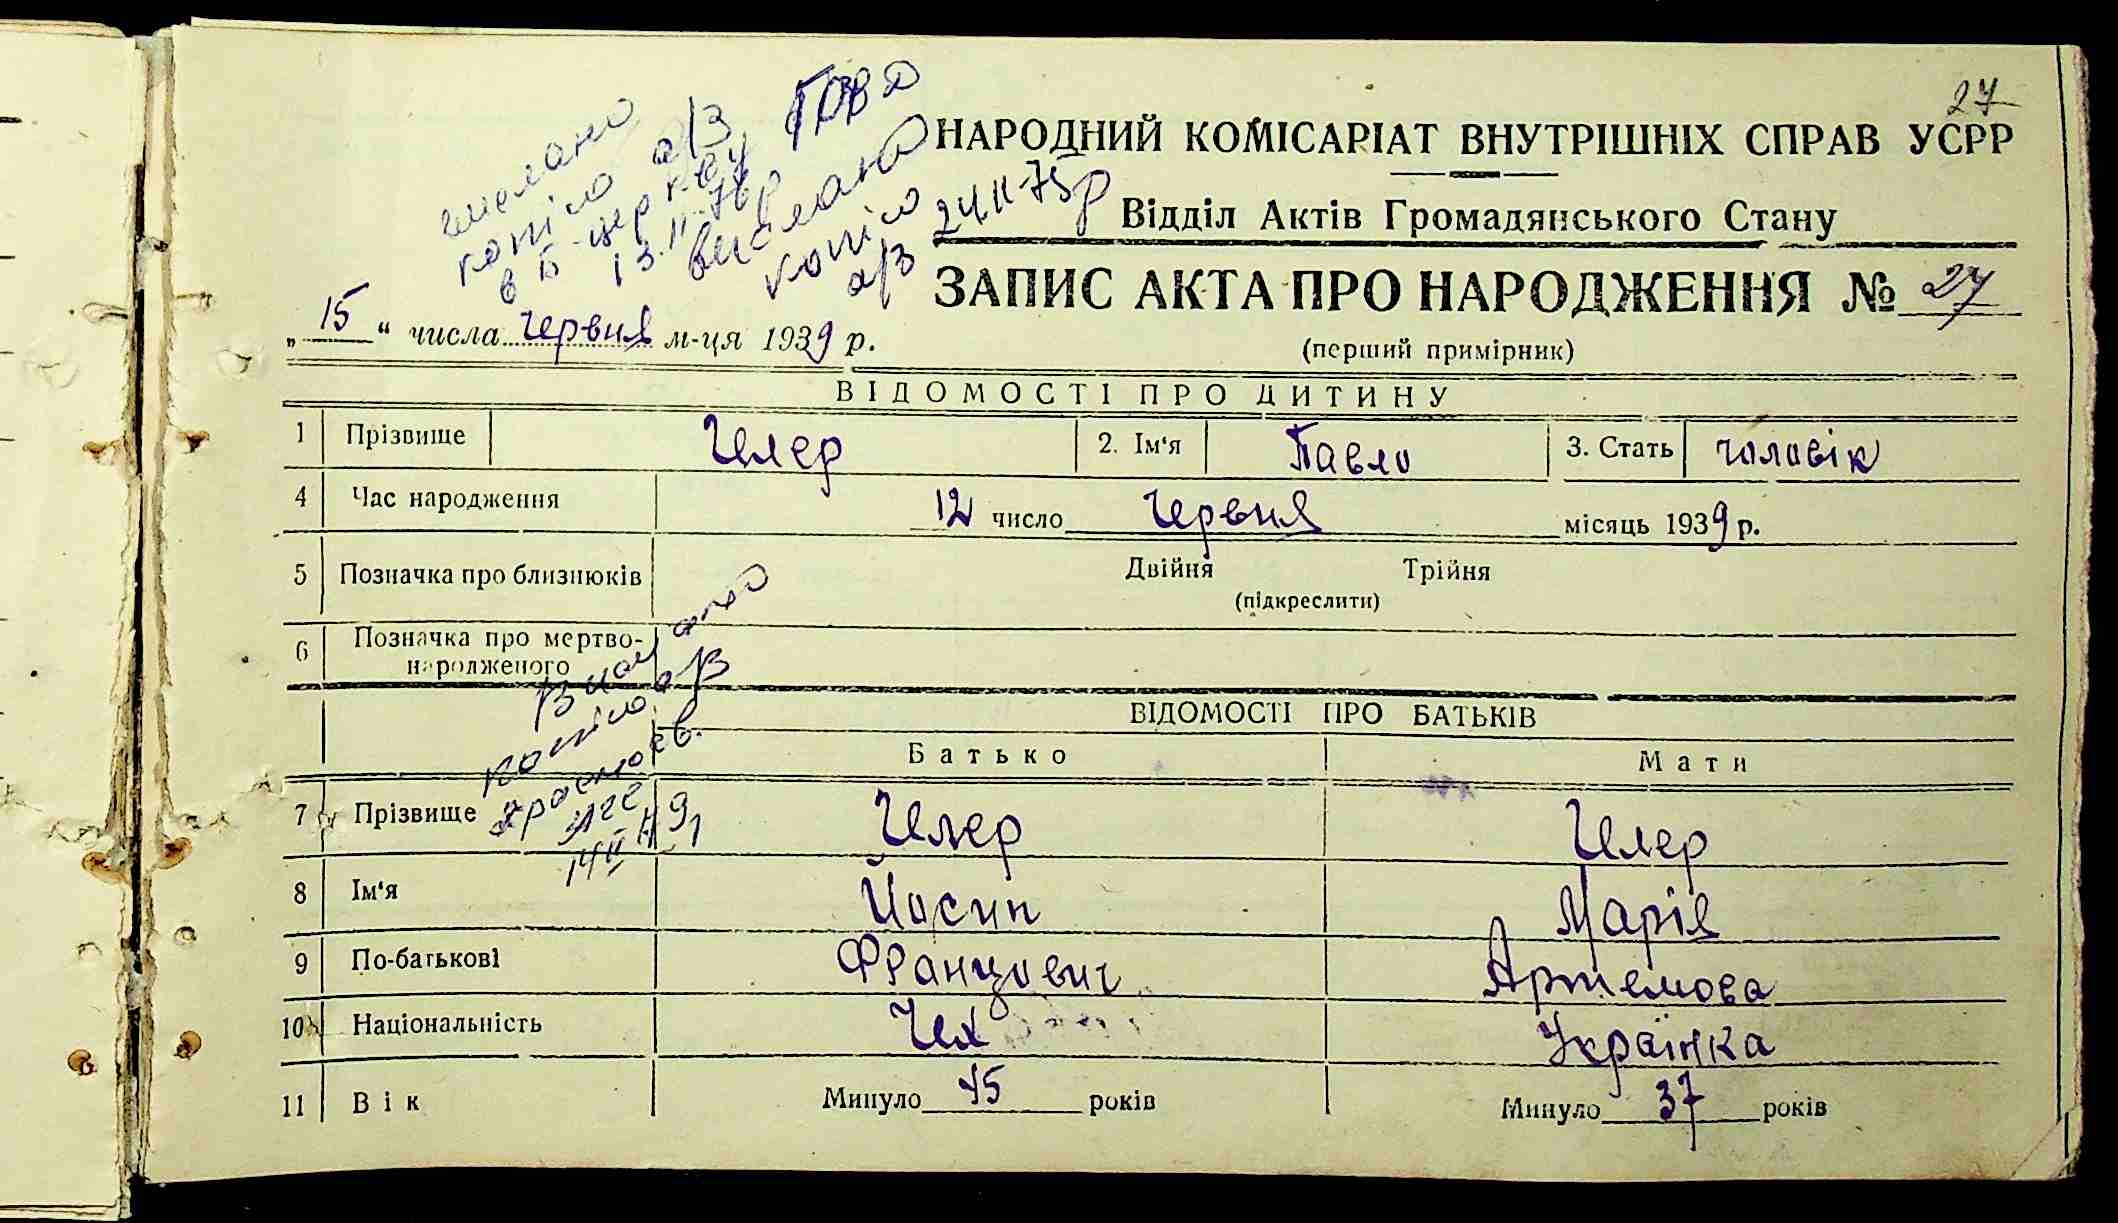 27
вислано
копію а/з
в Б-церкву
13.II-76р
вислано
копію
а/з
24.II-75р
НАРОДНИЙ КОМІСАРІАТ ВНУТРІШНІХ СПРАВ УСРР
Відділ Актів Громадянського Стану
ЗАПИС АКТА ПРО НАРОДЖЕННЯ № 27
„15“ числа червня м-ця 1939 р.
(перший примірник)
ВІДОМОСТІ ПРО ДИТИНУ
1 Прізвище Челер 2. Ім'я Павло 3. Стать чоловік
4 Час народження 12 число червня місяць 1939 р.
5 Позначка про близнюків Двійня Трійня
(підкреслити)
6 Позначка про мертво-
народженого
копію а/з
ВІДОМОСТІ ПРО БАТЬКІВ
Батько Мати
7 Прізвище Челер Челер
8 Ім'я Йосип Марія
9 По-батькові Францович Артемова
10 Національність Чех Українка
11 Вік Минуло 45 років Минуло 37 років